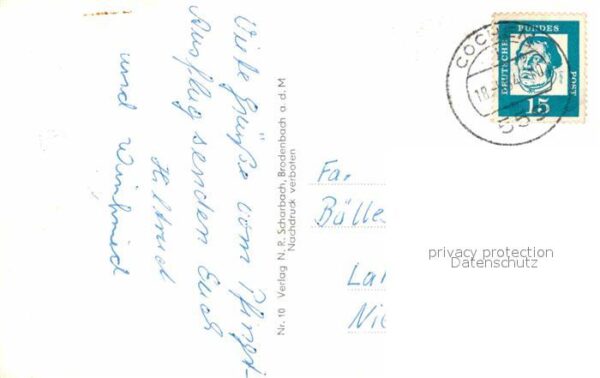 Viele Grüße vom Pfingst-
Ausflug senden Euch
Hiltrud
und Winfried
Nr. 10 Verlag N. P. Scharbach, Brodenbach a. d. M
Nachdruck verboten
DEUTSCHE
BUNDES
POST
15
COCH
18
555
Fa.
Bälle
La
Nie
privacy protection
Datenschutz